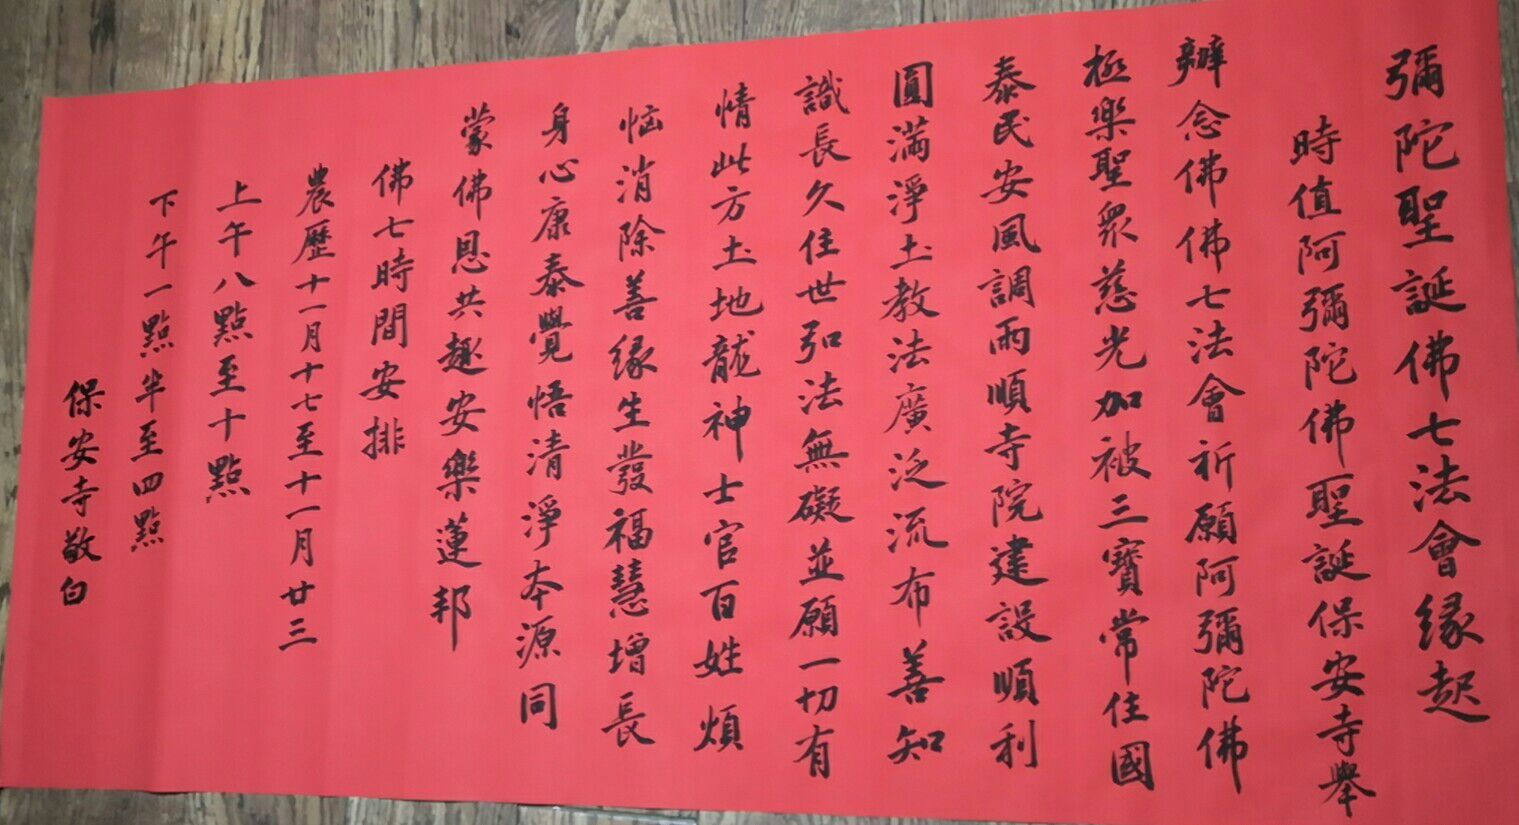 彌陀聖誕佛七法會緣起
時值阿彌陀佛聖誕保安寺舉
辦念佛佛七法會祈願阿彌陀佛
極樂聖眾慈光加被三寶常住國
泰民安風調雨順寺院建設順利
圓滿淨土教法廣泛流布善知
識長久住世弘法無礙並願一切有
情此方土地龍神士官百姓煩
惱消除善緣生發福慧增長
身心康泰覺悟清淨本源同
蒙佛恩共趣安樂蓮邦
佛七時間安排
農歷十一月十七至十一月廿三
上午八點至十點
下午一點半至四點
保安寺敬白